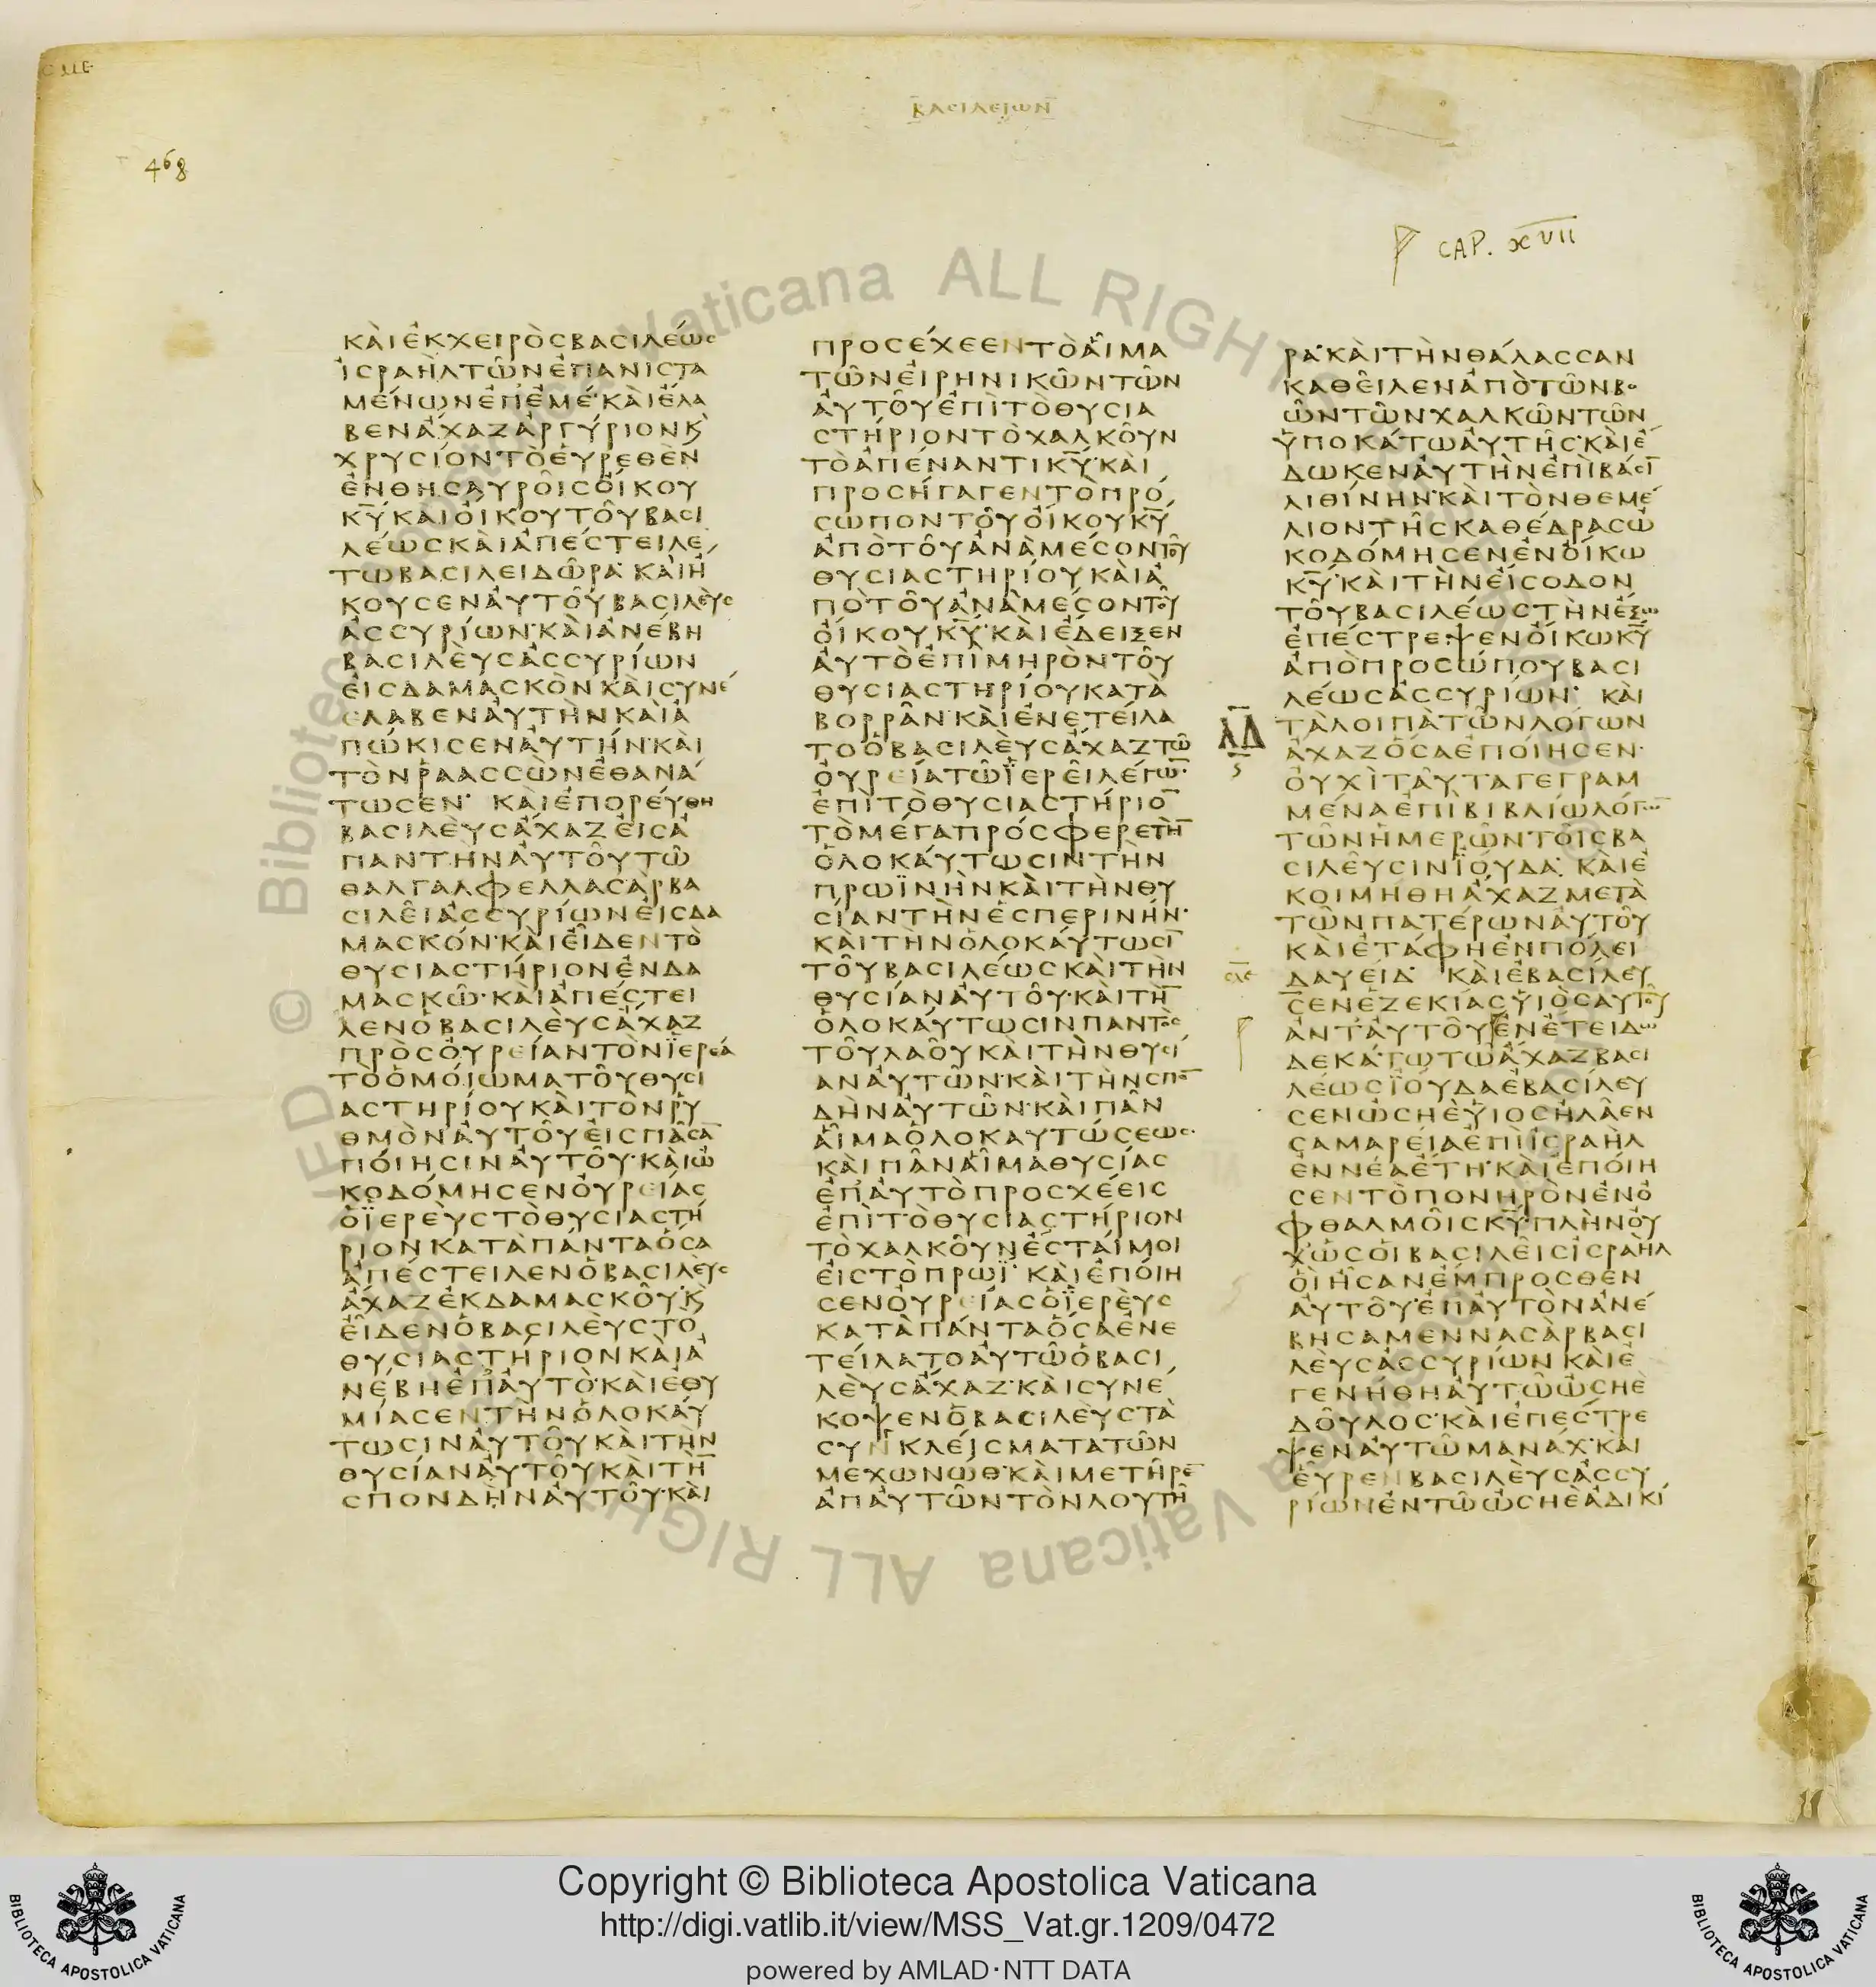 ϹΛΕ
ΒΑϹΙΛΕΙΩΝ
468
CAP. XVII
ΚΑΙ ΕΚ ΧΕΙΡΟϹ ΒΑϹΙΛΕΩϹ
ΙϹΡΑΗΛ ΤΩΝ ΕΠΑΝΙϹΤΑ
ΜΕΝΩΝ ΕΠ ΕΜΕ· ΚΑΙ ΕΛΑ
ΒΕΝ ΑΧΑΖ ΑΡΓΥΡΙΟΝ Κ
ΧΡΥϹΙΟΝ ΤΟ ΕΥΡΕΘΕΝ
ΕΝ ΘΗϹΑΥΡΟΙϹ ΟΙΚΟΥ
Κ̅Υ̅ ΚΑΙ ΟΙΚΟΥ ΤΟΥ ΒΑϹΙ
ΛΕΩϹ ΚΑΙ ΑΠΕϹΤΕΙΛΕ
ΤΩ ΒΑϹΙΛΕΙ ΔΩΡΑ· ΚΑΙ Η
ΚΟΥϹΕΝ ΑΥΤΟΥ ΒΑϹΙΛΕΥϹ
ΑϹϹΥΡΙΩΝ· ΚΑΙ ΑΝΕΒΗ
ΒΑϹΙΛΕΥϹ ΑϹϹΥΡΙΩΝ
ΕΙϹ ΔΑΜΑϹΚΟΝ ΚΑΙ ϹΥΝΕ
ΕΛΑΒΕΝ ΑΥΤΗΝ ΚΑΙ Α
ΠΩΚΙϹΕΝ ΑΥΤΗΝ· ΚΑΙ
ΤΟΝ ΡΑΑϹϹΩΝ ΕΘΑΝΑ
ΤΩϹΕΝ· ΚΑΙ ΕΠΟΡΕΥΘΗ
ΒΑϹΙΛΕΥϹ ΑΧΑΖ ΕΙϹ Α
ΠΑΝΤΗΝ ΑΥΤΟΥ ΤΩ
ΘΑΛΓΑΛΦΕΛΛΑϹΑΡ ΒΑ
ϹΙΛΕΙ ΑϹϹΥΡΙΩΝ ΕΙϹ ΔΑ
ΜΑϹΚΟΝ· ΚΑΙ ΕΙΔΕΝ ΤΟ
ΘΥϹΙΑϹΤΗΡΙΟΝ ΕΝ ΔΑ
ΜΑϹΚΩ· ΚΑΙ ΑΠΕϹΤΕΙ
ΛΕΝ Ο ΒΑϹΙΛΕΥϹ ΑΧΑΖ
ΠΡΟϹ ΟΥΡΕΙΑΝ ΤΟΝ ΙΕΡΕΑ
ΤΟ ΟΜΟΙΩΜΑ ΤΟΥ ΘΥϹΙ
ΑϹΤΗΡΙΟΥ ΚΑΙ ΤΟΝ ΡΥ
ΘΜΟΝ ΑΥΤΟΥ ΕΙϹ ΠΑϹΑ̅
ΠΟΙΗϹΙΝ ΑΥΤΟΥ· ΚΑΙ Ω
ΚΟΔΟΜΗϹΕΝ ΟΥΡΕΙΑϹ
Ο ΙΕΡΕΥϹ ΤΟ ΘΥϹΙΑϹΤΗ
ΡΙΟΝ ΚΑΤΑ ΠΑΝΤΑ ΟϹΑ
ΑΠΕϹΤΕΙΛΕΝ Ο ΒΑϹΙΛΕΥϹ
ΑΧΑΖ ΕΚ ΔΑΜΑϹΚΟΥ· Κ
ΕΙΔΕΝ Ο ΒΑϹΙΛΕΥϹ ΤΟ
ΘΥϹΙΑϹΤΗΡΙΟΝ ΚΑΙ Α
ΝΕΒΗ ΕΠ ΑΥΤΟ· ΚΑΙ ΕΘΥ
ΜΙΑϹΕΝ ΤΗΝ ΟΛΟΚΑΥ
ΤΩϹΙΝ ΑΥΤΟΥ ΚΑΙ ΤΗΝ
ΘΥϹΙΑΝ ΑΥΤΟΥ ΚΑΙ ΤΗ̅
ϹΠΟΝΔΗΝ ΑΥΤΟΥ· ΚΑΙ
ΠΡΟϹΕΧΕΕΝ ΤΟ ΑΙΜΑ
ΤΩΝ ΕΙΡΗΝΙΚΩΝ ΤΩΝ
ΑΥΤΟΥ ΕΠΙ ΤΟ ΘΥϹΙΑ
ϹΤΗΡΙΟΝ ΤΟ ΧΑΛΚΟΥΝ
ΤΟ ΑΠΕΝΑΝΤΙ Κ̅Υ̅· ΚΑΙ
ΠΡΟϹΗΓΑΓΕΝ ΤΟ ΠΡΟ
ϹΩΠΟΝ ΤΟΥ ΟΙΚΟΥ Κ̅Υ̅
ΑΠΟ ΤΟΥ ΑΝΑ ΜΕϹΟΝ ΤΟΥ
ΘΥϹΙΑϹΤΗΡΙΟΥ ΚΑΙ Α
ΠΟ ΤΟΥ ΑΝΑ ΜΕϹΟΝ ΤΟΥ
ΟΙΚΟΥ Κ̅Υ̅· ΚΑΙ ΕΔΕΙΞΕΝ
ΑΥΤΟ ΕΠΙ ΜΗΡΟΝ ΤΟΥ
ΘΥϹΙΑϹΤΗΡΙΟΥ ΚΑΤΑ
ΒΟΡΡΑΝ· ΚΑΙ ΕΝΕΤΕΙΛΑ
ΤΟ Ο ΒΑϹΙΛΕΥϹ ΑΧΑΖ ΤΩ
ΟΥΡΕΙΑ ΤΩ ΙΕΡΕΙ ΛΕΓΩ̅·
ΕΠΙ ΤΟ ΘΥϹΙΑϹΤΗΡΙΟ̅
ΤΟ ΜΕΓΑ ΠΡΟϹΦΕΡΕ ΤΗ̅
ΟΛΟΚΑΥΤΩϹΙΝ ΤΗΝ
ΠΡΩΙΝΗΝ ΚΑΙ ΤΗΝ ΘΥ
ϹΙΑΝ ΤΗΝ ΕϹΠΕΡΙΝΗΝ·
ΚΑΙ ΤΗΝ ΟΛΟΚΑΥΤΩϹΙ̅
ΤΟΥ ΒΑϹΙΛΕΩϹ ΚΑΙ ΤΗΝ
ΘΥϹΙΑΝ ΑΥΤΟΥ· ΚΑΙ ΤΗ̅
ΟΛΟΚΑΥΤΩϹΙΝ ΠΑΝΤΟϹ
ΤΟΥ ΛΑΟΥ ΚΑΙ ΤΗΝ ΘΥϹΙ
ΑΝ ΑΥΤΩΝ· ΚΑΙ ΤΗΝ ϹΠΟ̅
ΔΗΝ ΑΥΤΩΝ· ΚΑΙ ΠΑΝ
ΑΙΜΑ ΟΛΟΚΑΥΤΩϹΕΩϹ·
ΚΑΙ ΠΑΝ ΑΙΜΑ ΘΥϹΙΑϹ
ΕΠ ΑΥΤΟ ΠΡΟϹΧΕΕΙϹ
ΕΠΙ ΤΟ ΘΥϹΙΑϹΤΗΡΙΟΝ
ΤΟ ΧΑΛΚΟΥΝ ΕϹΤΑΙ ΜΟΙ
ΕΙϹ ΤΟ ΠΡΩΙ· ΚΑΙ ΕΠΟΙΗ
ϹΕΝ ΟΥΡΕΙΑϹ Ο ΙΕΡΕΥϹ
ΚΑΤΑ ΠΑΝΤΑ ΟϹΑ ΕΝΕ
ΤΕΙΛΑΤΟ ΑΥΤΩ Ο ΒΑϹΙ
ΛΕΥϹ ΑΧΑΖ· ΚΑΙ ϹΥΝΕ
ΚΟΨΕΝ Ο ΒΑϹΙΛΕΥϹ ΤΑ
ϹΥΝΚΛΕΙϹΜΑΤΑ ΤΩΝ
ΜΕΧΩΝΩΘ· ΚΑΙ ΜΕΤΗΡΕ̅
ΑΠ ΑΥΤΩΝ ΤΟΝ ΛΟΥΤΗ
ΡΑ· ΚΑΙ ΤΗΝ ΘΑΛΑϹϹΑΝ
ΚΑΘΕΙΛΕΝ ΑΠΟ ΤΩΝ ΒΟ
ΩΝ ΤΩΝ ΧΑΛΚΩΝ ΤΩΝ
ΥΠΟΚΑΤΩ ΑΥΤΗϹ· ΚΑΙ Ε
ΔΩΚΕΝ ΑΥΤΗΝ ΕΠΙ ΒΑϹΙ̅
ΛΙΘΙΝΗΝ· ΚΑΙ ΤΟΝ ΘΕΜΕ
ΛΙΟΝ ΤΗϹ ΚΑΘΕΔΡΑϹ Ω
ΚΟΔΟΜΗϹΕΝ ΕΝ ΟΙΚΩ
Κ̅Υ̅· ΚΑΙ ΤΗΝ ΕΙϹΟΔΟΝ
ΤΟΥ ΒΑϹΙΛΕΩϹ ΤΗΝ ΕΞΩ
ΕΠΕϹΤΡΕΨΕΝ ΟΙΚΩ Κ̅Υ̅
ΑΠΟ ΠΡΟϹΩΠΟΥ ΒΑϹΙ
ΛΕΩϹ ΑϹϹΥΡΙΩΝ· ΚΑΙ
Λ̅Δ̅ ΤΑ ΛΟΙΠΑ ΤΩΝ ΛΟΓΩΝ
ΑΧΑΖ ΟϹΑ ΕΠΟΙΗϹΕΝ·
ΟΥΧΙ ΤΑΥΤΑ ΓΕΓΡΑΜ
ΜΕΝΑ ΕΠΙ ΒΙΒΛΙΩ ΛΟΓΩ̅
ΤΩΝ ΗΜΕΡΩΝ ΤΟΙϹ ΒΑ
ϹΙΛΕΥϹΙΝ ΙΟΥΔΑ· ΚΑΙ Ε
ΚΟΙΜΗΘΗ ΑΧΑΖ ΜΕΤΑ
ΤΩΝ ΠΑΤΕΡΩΝ ΑΥΤΟΥ
ΚΑΙ ΕΤΑΦΗ ΕΝ ΠΟΛΕΙ
ΔΑΥΕΙΔ· ΚΑΙ ΕΒΑϹΙΛΕΥ
ϹΕΝ ΕΖΕΚΙΑϹ ΥΙΟϹ ΑΥΤΟΥ
ΑΝΤ ΑΥΤΟΥ ΕΝ ΕΤΕΙ ΔΩ
ΔΕΚΑΤΩ ΤΩ ΑΧΑΖ ΒΑϹΙ
ΛΕΩϹ ΙΟΥΔΑ ΕΒΑϹΙΛΕΥ
ϹΕΝ ΩϹΗΕ ΥΙΟϹ ΗΛΑ ΕΝ
ϹΑΜΑΡΕΙΑ ΕΠΙ ΙϹΡΑΗΛ
ΕΝΝΕΑ ΕΤΗ· ΚΑΙ ΕΠΟΙΗ
ϹΕΝ ΤΟ ΠΟΝΗΡΟΝ ΕΝ Ο
ΦΘΑΛΜΟΙϹ Κ̅Υ̅· ΠΛΗΝ ΟΥ
Χ ΩϹ ΟΙ ΒΑϹΙΛΕΙϹ ΙϹΡΑΗΛ
ΟΙ ΗϹΑΝ ΕΜΠΡΟϹΘΕΝ
ΑΥΤΟΥ· ΕΠ ΑΥΤΟΝ ΑΝΕ
ΒΗ ϹΑΜΕΝΝΑϹΑΡ ΒΑϹΙ
ΛΕΥϹ ΑϹϹΥΡΙΩΝ ΚΑΙ Ε
ΓΕΝΗΘΗ ΑΥΤΩ ΩϹΗΕ
ΔΟΥΛΟϹ· ΚΑΙ ΕΠΕϹΤΡΕ
ΨΕΝ ΑΥΤΩ ΜΑΝΑΧ· ΚΑΙ
ΕΥΡΕΝ ΒΑϹΙΛΕΥϹ ΑϹϹΥ
ΡΙΩΝ ΕΝ ΤΩ ΩϹΗΕ ΑΔΙΚΙ
Copyright © Biblioteca Apostolica Vaticana
http://digi.vatlib.it/view/MSS_Vat.gr.1209/0472
powered by AMLAD·NTT DATA
BIBLIOTECA APOSTOLICA VATICANA
BIBLIOTECA APOSTOLICA VATICANA